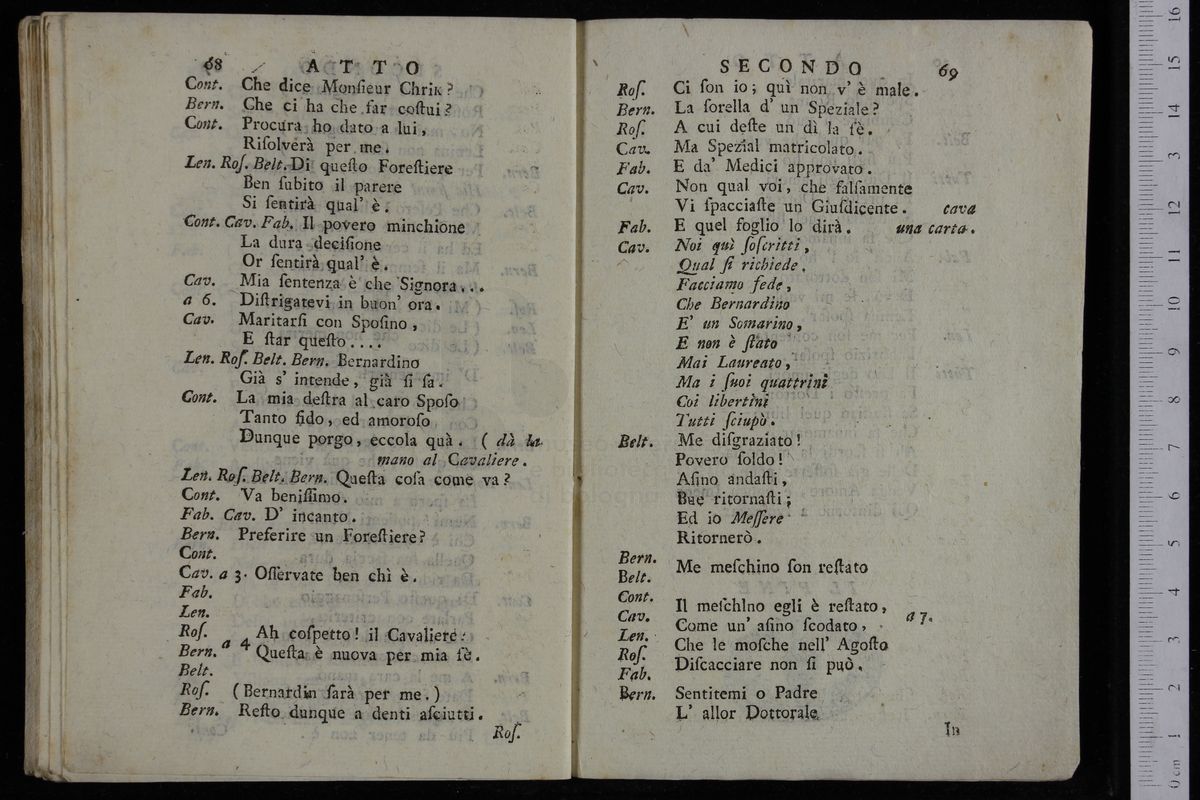 68 ATTO
Cont. Che dice Monſieur Chrik?
Bern. Che ci ha che far coſtui?
Cont. Procura ho dato a lui,
Riſolverà per me.
Len. Roſ. Belt. Di queſto Foreſtiere
Ben ſubito il parere
Si ſentirà qual' è.
Cont. Cav. Fab. Il povero minchione
La dura deciſione
Or ſentirà qual' è.
Cav. Mia ſentenza è che Signora...
a 6. Diſtrigatevi in buon' ora.
Cav. Maritarſi con Spoſino,
E ſtar queſto....
Len. Roſ. Belt. Bern. Bernardino
Già s' intende, già ſi ſa.
Cont. La mia deſtra al caro Spoſo
Tanto fido, ed amoroſo
Dunque porgo, eccola quà. ( dà la
mano al Cavaliere.
Len. Roſ. Belt. Bern. Queſta coſa come va?
Cont. Va beniſſimo.
Fab. Cav. D' incanto.
Bern. Preferire un Foreſtiere?
Cont.
Cav. a 3. Oſſervate ben chi è.
Fab.
Len.
Roſ. Ah coſpetto! il Cavaliere:
Bern. a 4 Queſta è nuova per mia fè.
Belt.
Roſ. (Bernardin ſarà per me.)
Bern. Reſto dunque a denti aſciutti.
Roſ.
SECONDO 69
Roſ. Ci ſon io; quì non v' è male.
Bern. La ſorella d' un Speziale?
Roſ. A cui deſte un dì la fè.
Cav. Ma Spezial matricolato.
Fab. E da' Medici approvato.
Cav. Non qual voi, che falſamente
Vi ſpacciaſte un Giuſdicente. cava
Fab. E quel foglio lo dirà. una carta.
Cav. Noi quì ſoſcritti,
Qual ſi richiede,
Facciamo fede,
Che Bernardino
E' un Somarino,
E non è ſtato
Mai Laureato,
Ma i ſuoi quattrini
Coi libertini
Tutti ſciupò.
Belt. Me diſgraziato!
Povero ſoldo!
Aſino andaſti,
Bue ritornaſti;
Ed io Meſſere
Ritornerò.
Bern.
Belt. Me meſchino ſon reſtato
Cont.
Cav. Il meſchino egli è reſtato,
Len. Come un' aſino ſcodato, a 7.
Roſ. Che le moſche nell' Agoſto
Fab. Diſcacciare non ſi può.
Bern. Sentitemi o Padre
L' allor Dottorale
In